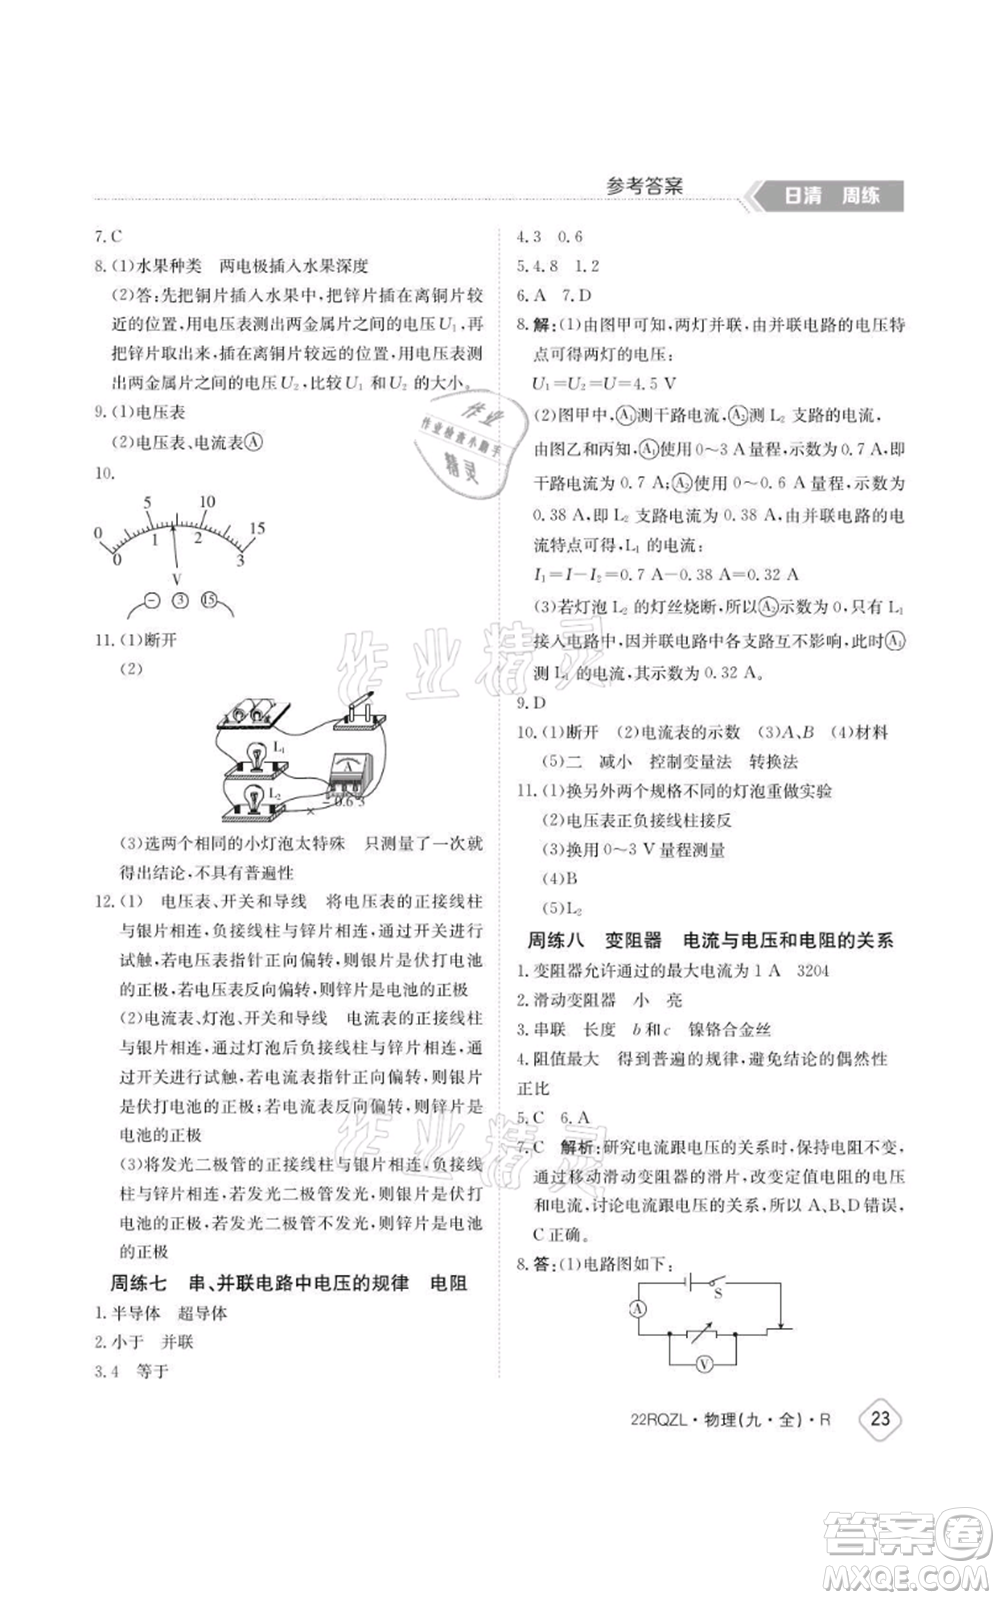 参考答案
日清 周练
7.C
8.(1)水果种类 两电极插入水果深度
(2)答:先把铜片插入水果中,把锌片插在离铜片较
近的位置,用电压表测出两金属片之间的电压U₁,再
把锌片取出来,插在离铜片较远的位置,用电压表测
出两金属片之间的电压U₂,比较U₁和U₂的大小。
9.(1)电压表
(2)电压表、电流表Ⓐ
10.
0 5 10 15
0 1 2 3
V
− 3 15
11.(1)断开
(2)
L₁
L₂
A
− 0.6 3
×
(3)选两个相同的小灯泡太特殊 只测量了一次就
得出结论,不具有普遍性
12.(1) 电压表、开关和导线 将电压表的正接线柱
与银片相连,负接线柱与锌片相连,通过开关进行
试触,若电压表指针正向偏转,则银片是伏打电池
的正极;若电压表反向偏转,则锌片是电池的正极
(2)电流表、灯泡、开关和导线 电流表的正接线柱
与银片相连,通过灯泡后负接线柱与锌片相连,通
过开关进行试触,若电流表指针正向偏转,则银片
是伏打电池的正极;若电流表反向偏转,则锌片是
电池的正极
(3)将发光二极管的正接线柱与银片相连,负接线
柱与锌片相连,若发光二极管发光,则银片是伏打
电池的正极,若发光二极管不发光,则锌片是电池
的正极
周练七 串、并联电路中电压的规律 电阻
1.半导体 超导体
2.小于 并联
3.4 等于
4.3 0.6
5.4.8 1.2
6.A 7.D
8.解:(1)由图甲可知,两灯并联,由并联电路的电压特
点可得两灯的电压:
U₁=U₂=U=4.5 V
(2)图甲中,Ⓐ₁测干路电流,Ⓐ₂测 L₂ 支路的电流,
由图乙和丙可知:Ⓐ₁用 0~3 A 量程,示数为 0.7 A,即
干路电流为 0.7 A,Ⓐ₂用 0~0.6 A 量程,示数为
0.38 A,即 L₂ 支路电流为 0.38 A,由并联电路的电
流特点可得,L₁ 的电流:
I₁=I−I₂=0.7 A−0.38 A=0.32 A
(3)若灯泡 L₂ 的灯丝烧断,所以Ⓐ₂示数为 0,只有 L₁
接入电路中,因并联电路中各支路互不影响,此时Ⓐ₁
测 L₁ 的电流,其示数为 0.32 A。
9.D
10.(1)断开 (2)电流表的示数 (3)A、B (4)材料
(5)二 减小 控制变量法 转换法
11.(1)换另外两个规格不同的灯泡重做实验
(2)电压表正负接线柱接反
(3)换用 0~3 V 量程测量
(4)B
(5)L₂
周练八 变阻器 电流与电压和电阻的关系
1.变阻器允许通过的最大电流为 1 A 3204
2.滑动变阻器 小 亮
3.串联 长度 b和c 镍铬合金丝
4.阻值最大 得到普遍的规律,避免结论的偶然性
正比
5.C 6.A
7.C 解析:研究电流跟电压的关系时,保持电阻不变,
通过移动滑动变阻器的滑片,改变定值电阻的电压
和电流,讨论电流跟电压的关系,所以 A、B、D 错误,
C 正确。
8.答:(1)电路图如下:
S
A
V
22RQZL·物理(九·全)·R 23
作业
作业检查小助手
精灵
作业精灵
作业精灵
答案卷
MXQE.COM